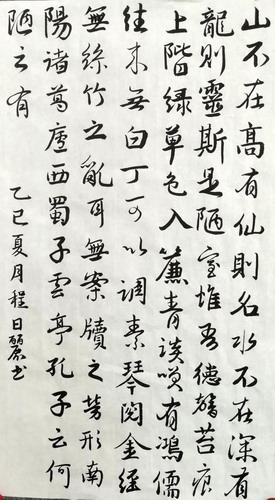 山不在高有仙則名水不在深有
龍則靈斯是陋室惟吾德馨苔痕
上階緑草色入簾青談笑有鴻儒
往来無白丁可以調素琴阅金經
無絲竹之亂耳無案牘之勞形南
陽諸葛廬西蜀子雲亭孔子云何
陋之有
乙巳夏月程日麗书